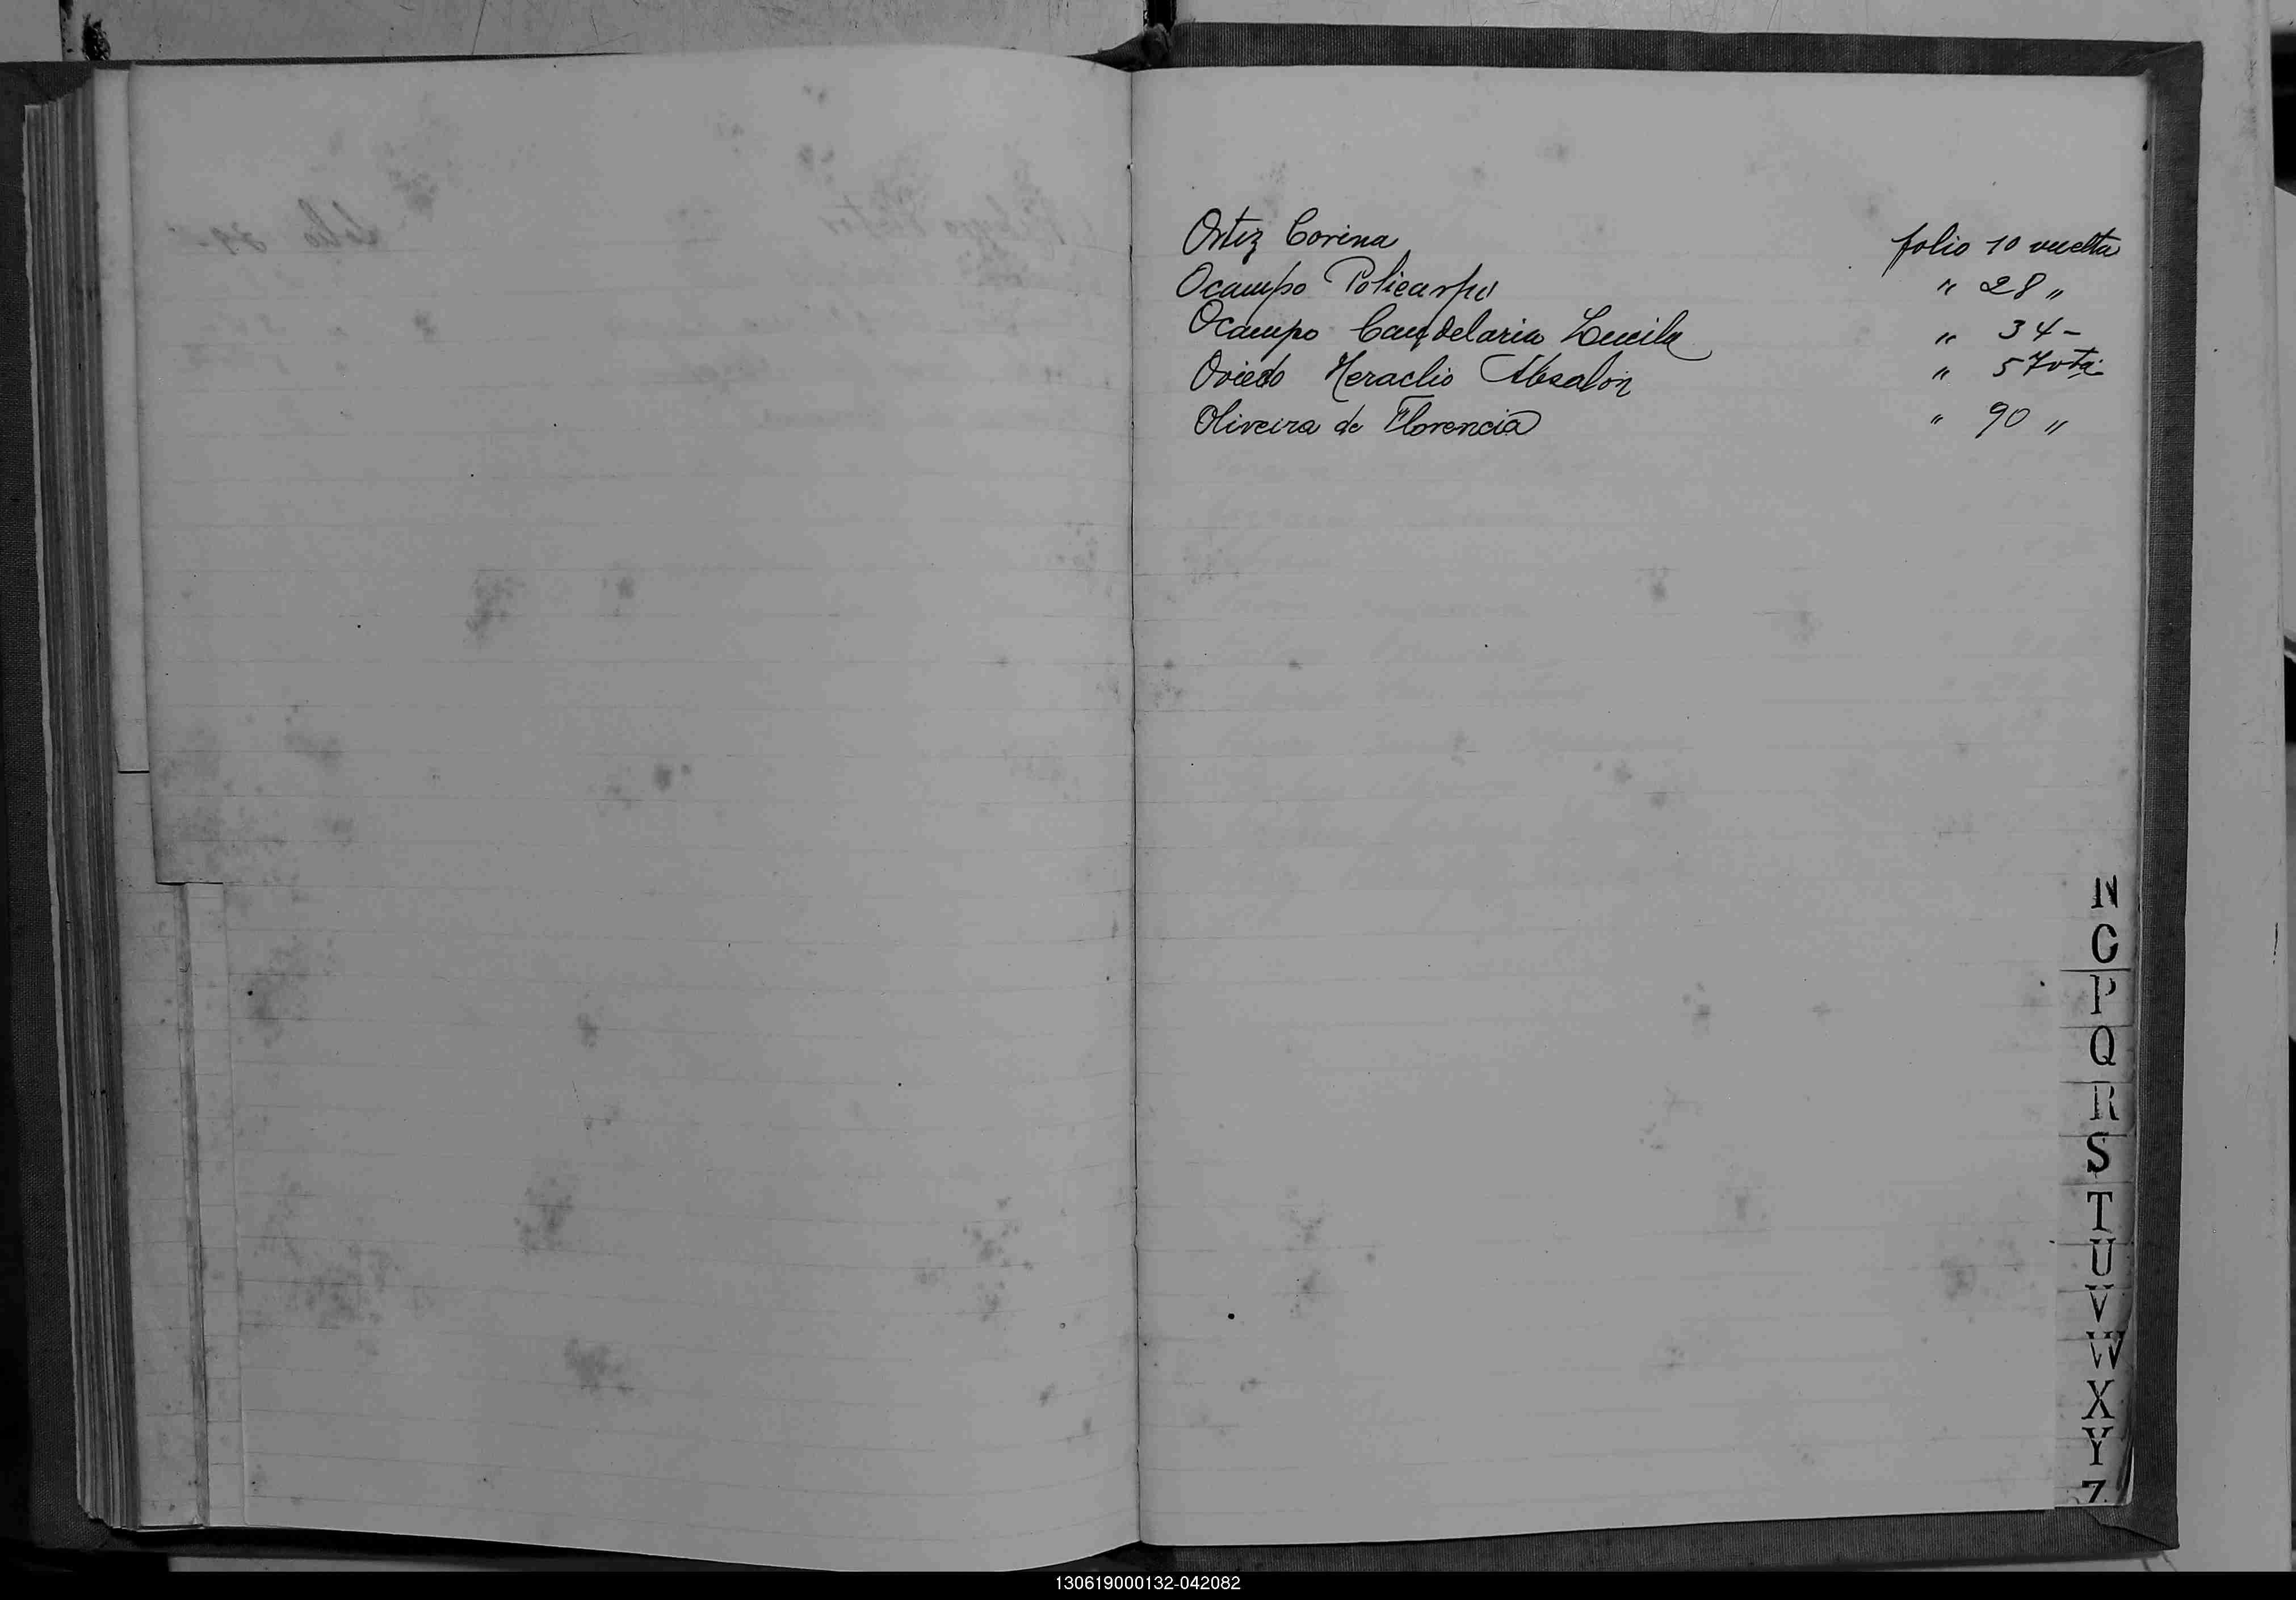 Ortiz Corina folio 10 vuelta
Ocampo Policarpo " 28 "
Ocampo Candelaria Lucila " 34 -
Oviedo Heraclio Absalón " 57 vta.
Oliveira de Florencia " 90 "
N
O
P
Q
R
S
T
U
V
W
X
Y
Z
130619000132-042082